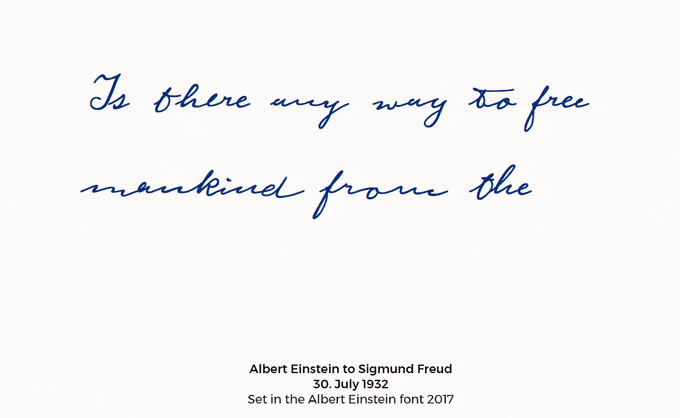 Is there any way to free
mankind from the
Albert Einstein to Sigmund Freud
30. July 1932
Set in the Albert Einstein font 2017